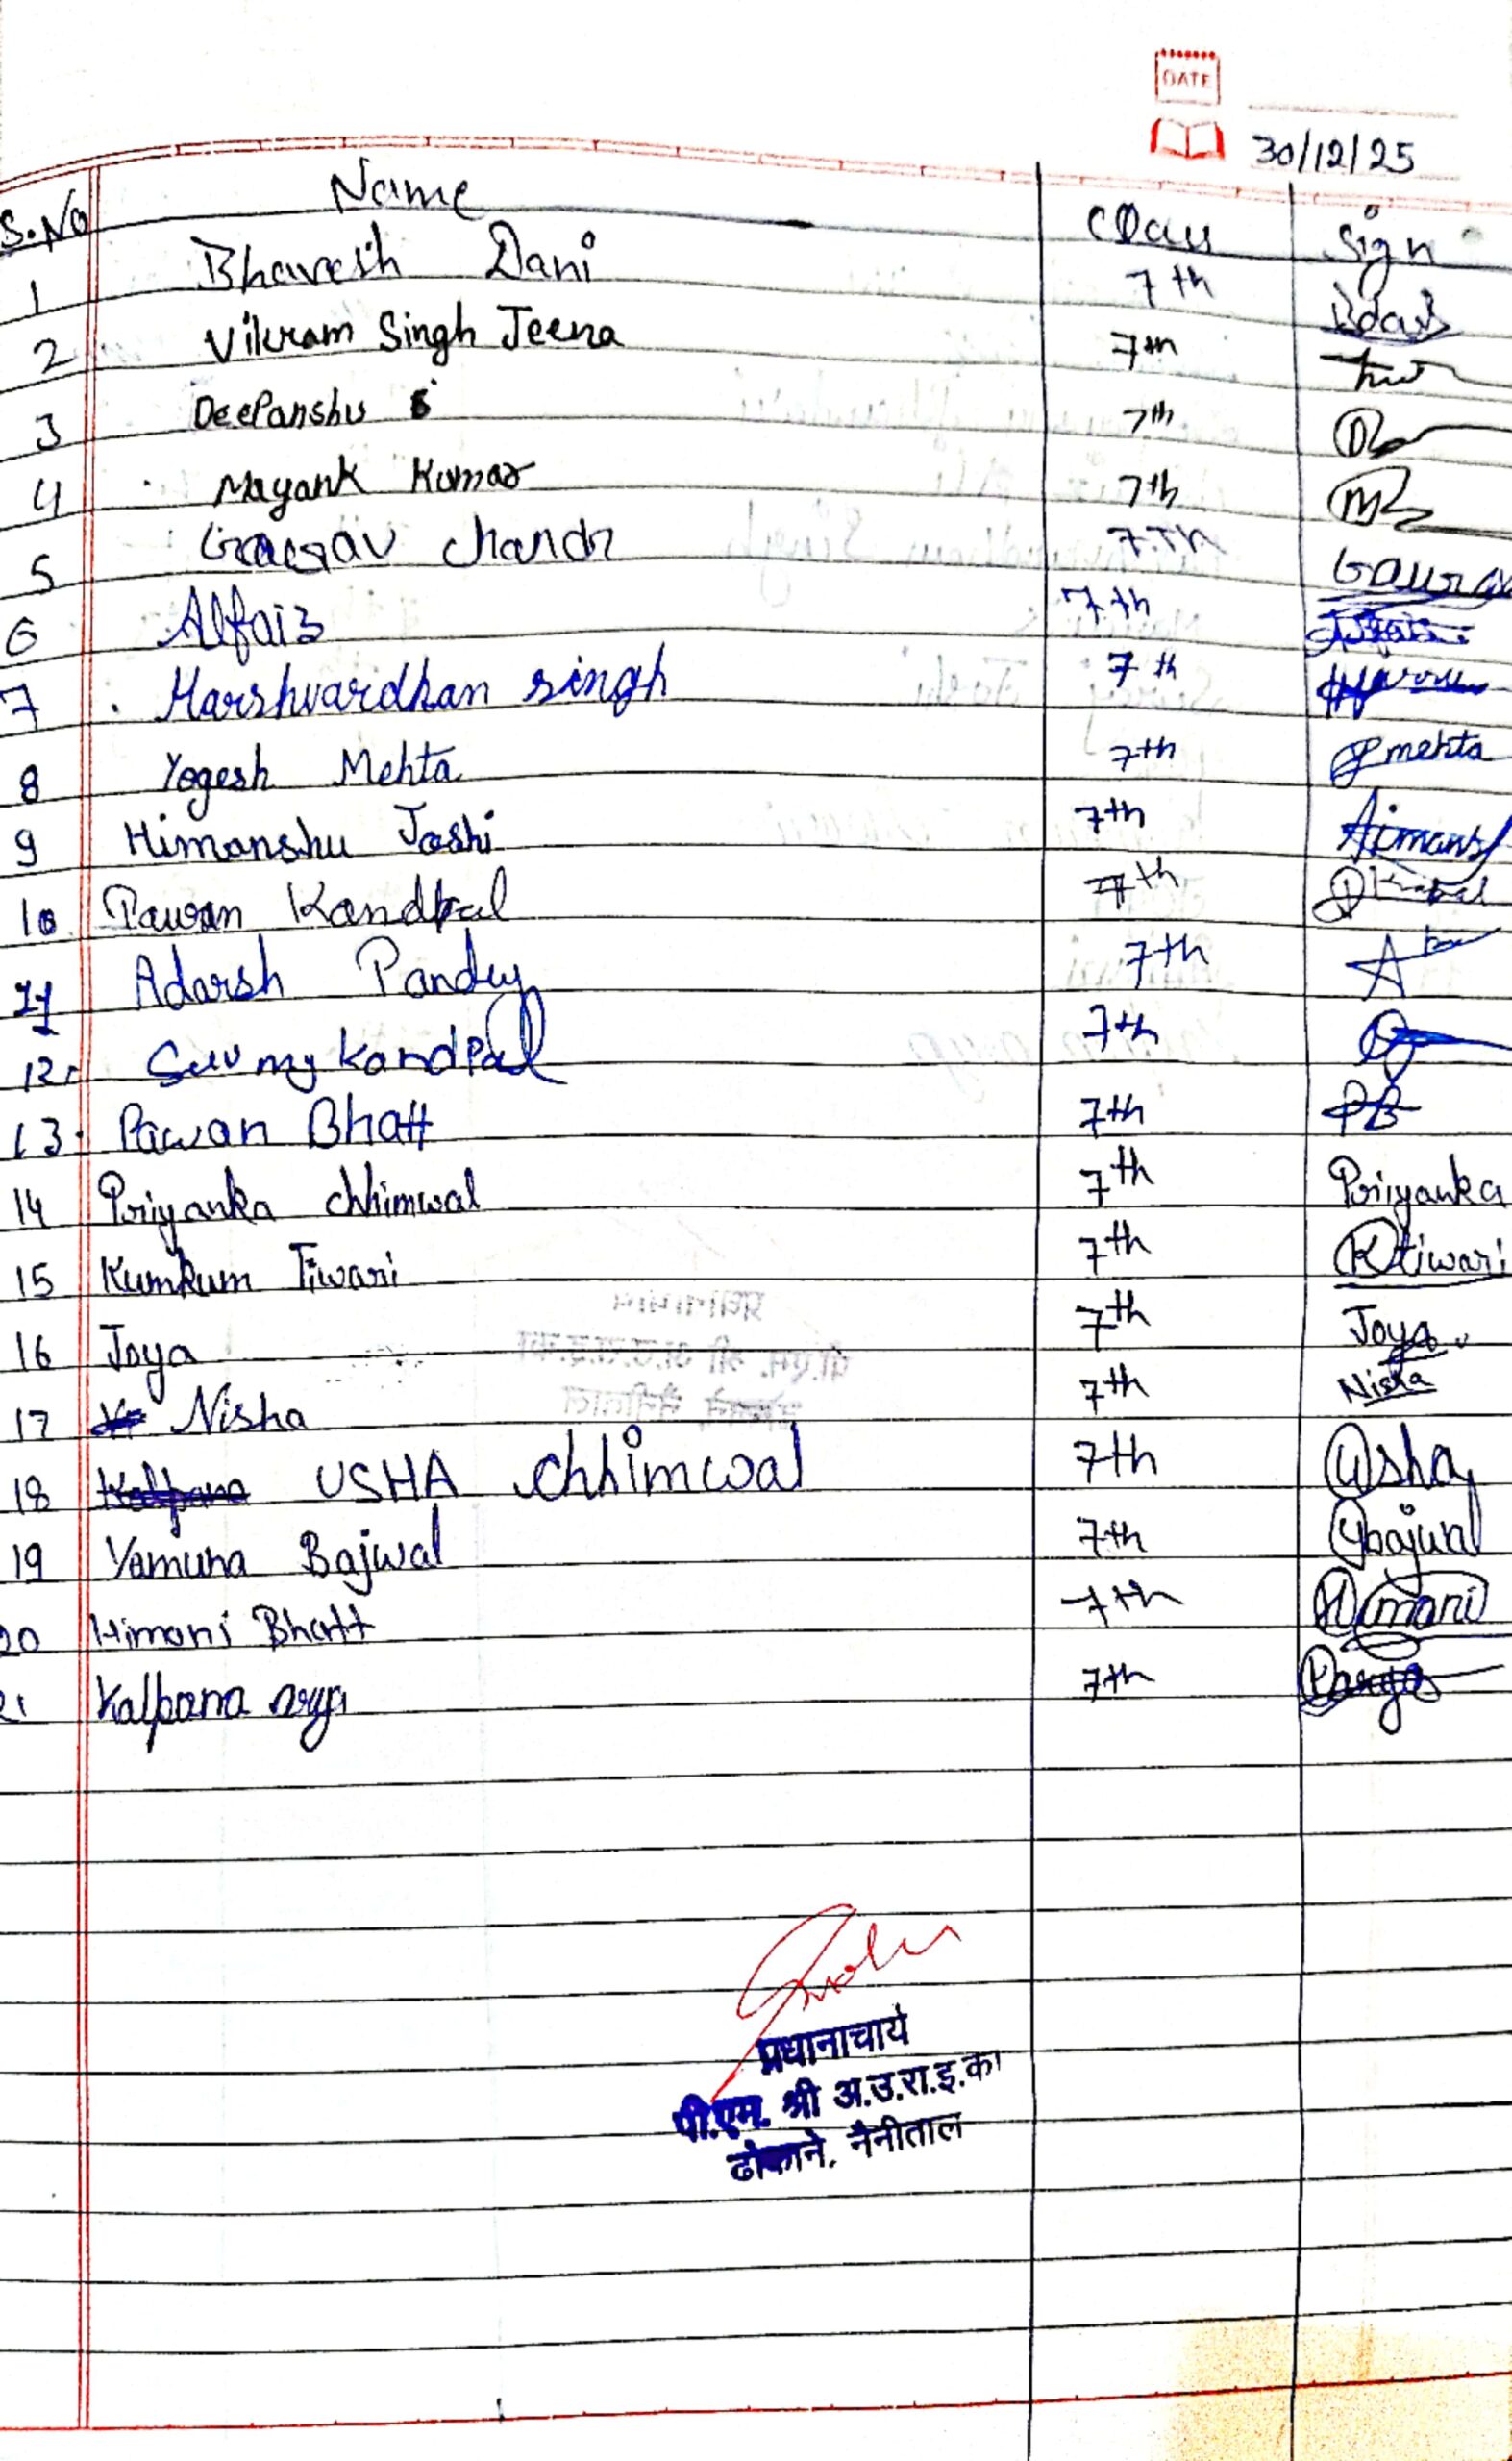 DATE
30/12/25
S.No Name Class Sign
1 Bhavesh Dani 7th
2 Vikram Singh Jeena 7th
3 Deepanshu 7th
4 Mayank Kumar 7th
5 Gaurav Chandr 7th Gaurav
6 Alfaiz 7th
7 Harshvardhan singh 7th
8 Yogesh Mehta 7th Ymehta
9 Himanshu Joshi 7th
10 Pawan Kandpal 7th
11 Adarsh Pandey 7th
12. Kandpal 7th
13. Pawan Bhatt 7th PB
14 Priyanka chhimwal 7th Priyanka
15 Kumkum Tiwari 7th Ktiwari
16 Joya 7th Joya
17 Nisha 7th Nisha
18 USHA chhimwal 7th Usha
19 Yamuna Bajwal 7th Ybajwal
20 Himani Bhatt 7th Himani
21 Kalpana arya 7th Karya
प्रधानाचार्य
पी.एम. श्री अ.उ.रा.इ.का
ढोकाने, नैनीताल